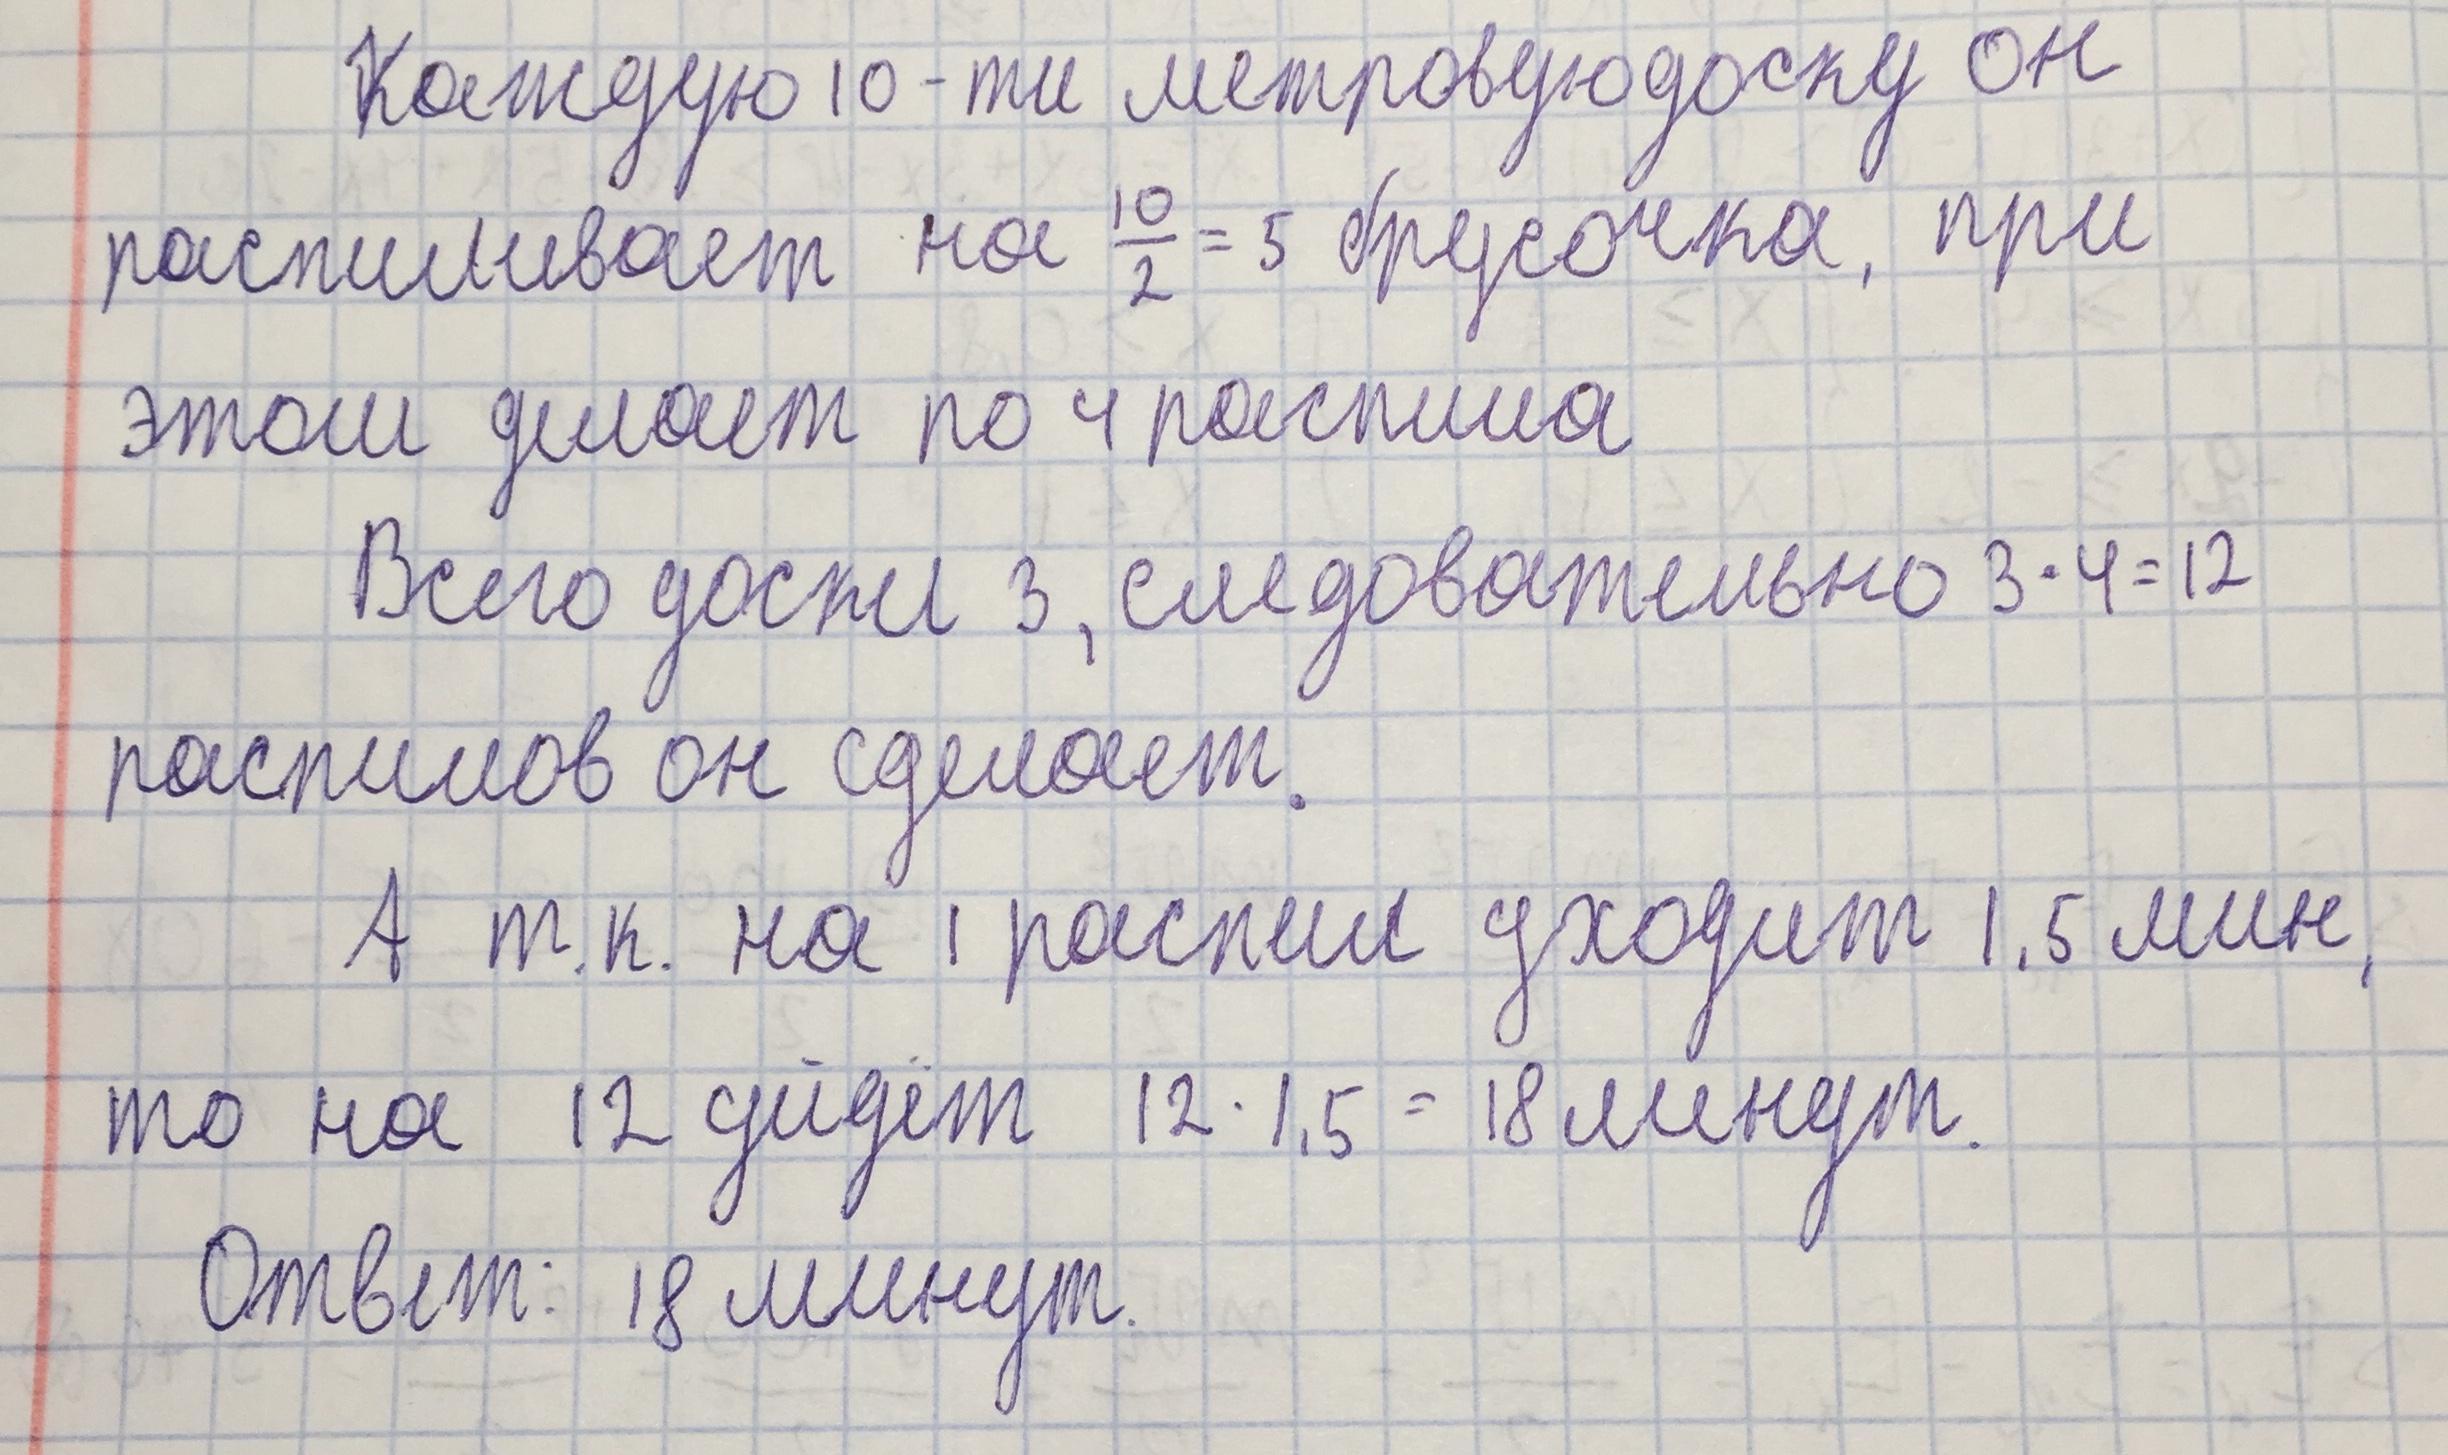 Каждую 10-ти метровую доску он
распиливает на 10/2 = 5 брусочка, при
этом делает по 4 распила
Всего доски 3, следовательно 3·4=12
распилов он сделает.
А т.к. на 1 распил уходит 1,5 мин,
то на 12 уйдёт 12·1,5 = 18 минут.
Ответ: 18 минут.